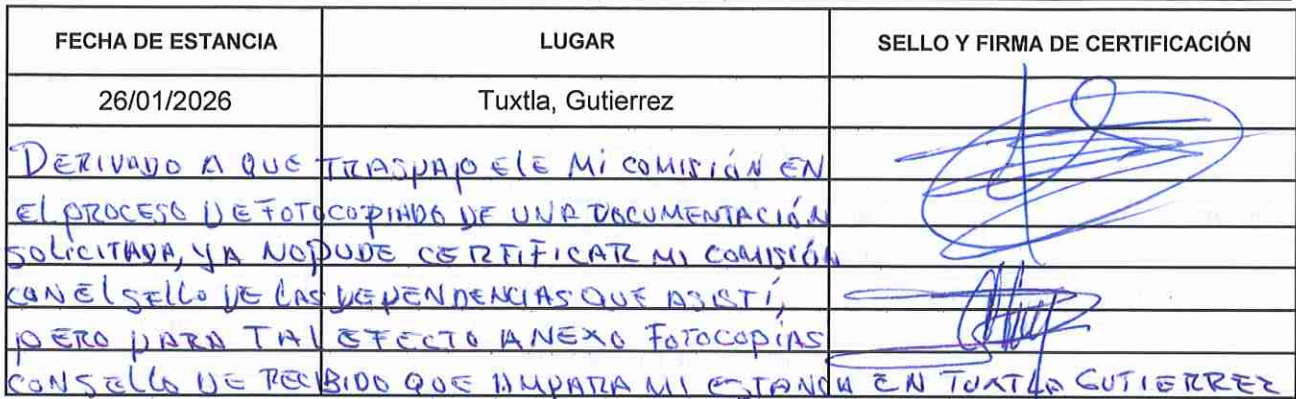 FECHA DE ESTANCIA LUGAR SELLO Y FIRMA DE CERTIFICACIÓN
26/01/2026 Tuxtla, Gutierrez
DERIVADO A QUE TRASPAPELE MI COMISIÓN EN
El PROCESO DE FOTOCOPIADO DE UNA DOCUMENTACIÓN
SOLICITADA, YA NO PUDE CERTIFICAR MI COMISIÓN
CON El SELLO DE LAS DEPENDENCIAS QUE ASISTÍ,
PERO PARA TAL EFECTO ANEXO FOTOCOPIAS
CON SELLO DE RECIBIDO QUE AMPARA MI ESTANCIA EN TUXTLA GUTIERREZ